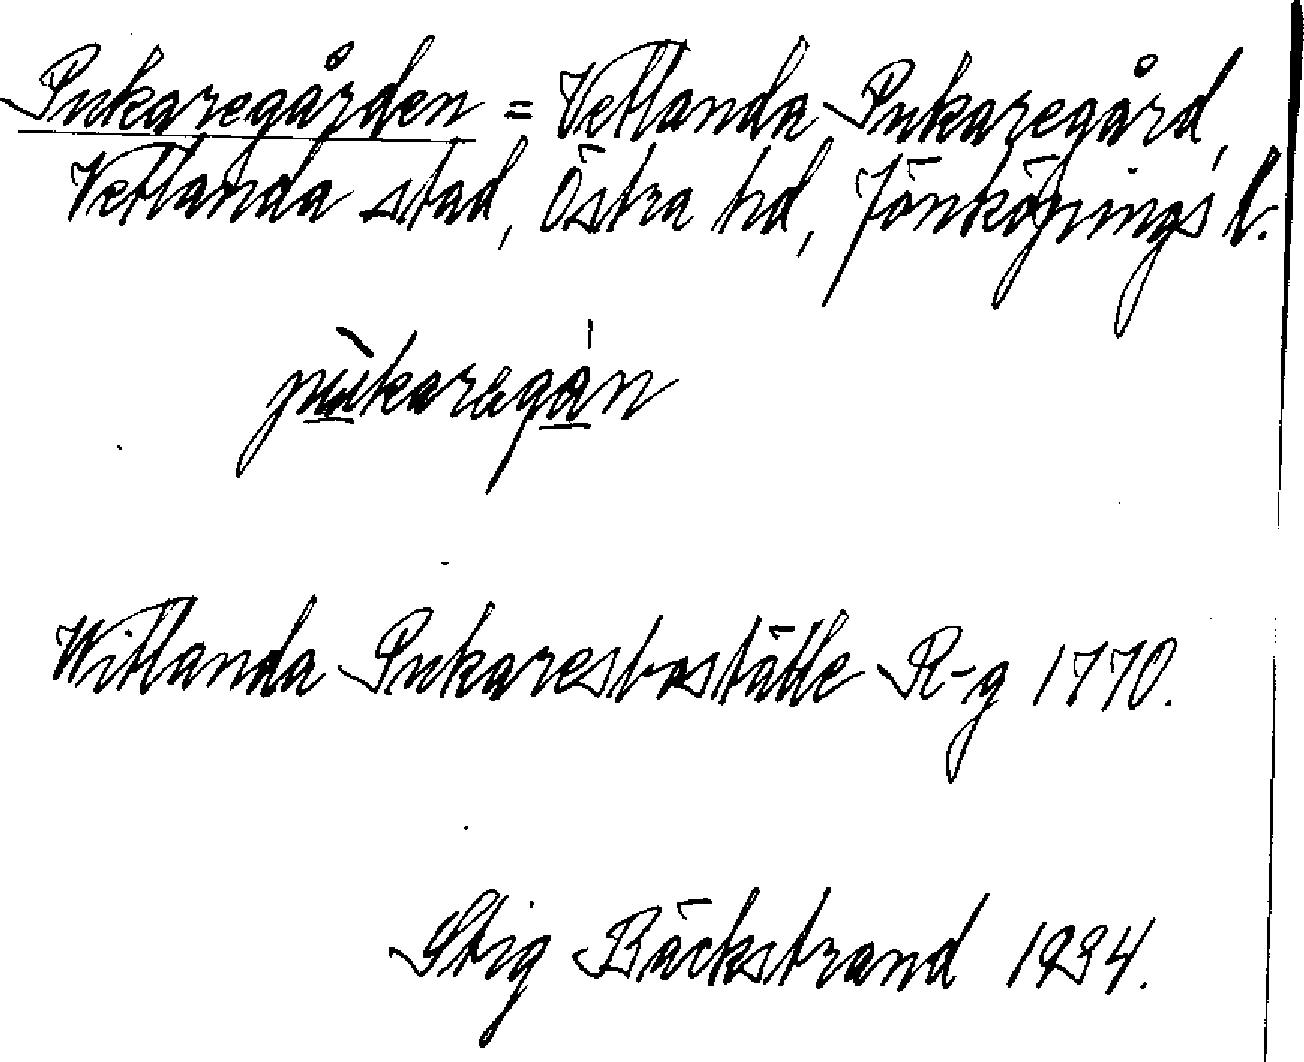 Pukaregården = Vetlanda Pukaregård,
Vetlanda stad, Östra hd, Jönköpings l.
pukaregån
Witlanda Pukaresbostätte R-g 1770.
Stig Bäckstrand 1934.